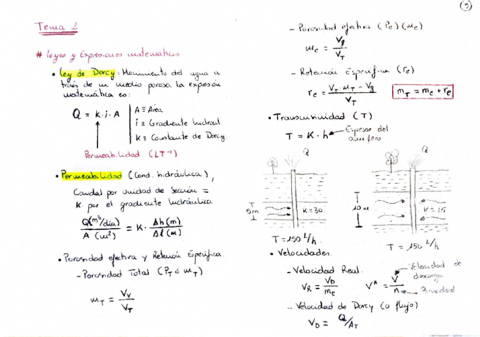 Tema 2
# Leyes y Expresiones matemáticas
• Ley de Darcy: Movimiento del agua a
través de un medio poroso. La expresión
matemática es:
Q = k · i · A
A = Área
i = Gradiente hidraul
k = Constante de Darcy
Permeabilidad (LT⁻¹)
• Permeabilidad (Cond. hidráulica),
Caudal por unidad de Sección =
K por el gradiente hidráulico
Q(m³/día) / A (m²) = K · Δh(m) / Δl(m)
• Porosidad efectiva y Retención Específica
- Porosidad Total (PT ó mT)
mT = Vv / VT
- Porosidad efectiva (Pe) (me)
me = Vg / VT
- Retención Específica (re)
re = VT · mT - Vg / VT
mT = me + re
• Transmisividad (T)
T = K · h
Espesor del
acuífero
Q
Q
T
5m
K=30
10m
K=15
T = 150 L/h
T = 150 L/h
• Velocidades
- Velocidad Real
VR = VD / me
V* = V / n
Velocidad de
Porosidad
- Velocidad de Darcy (o flujo)
VD = Q/AT